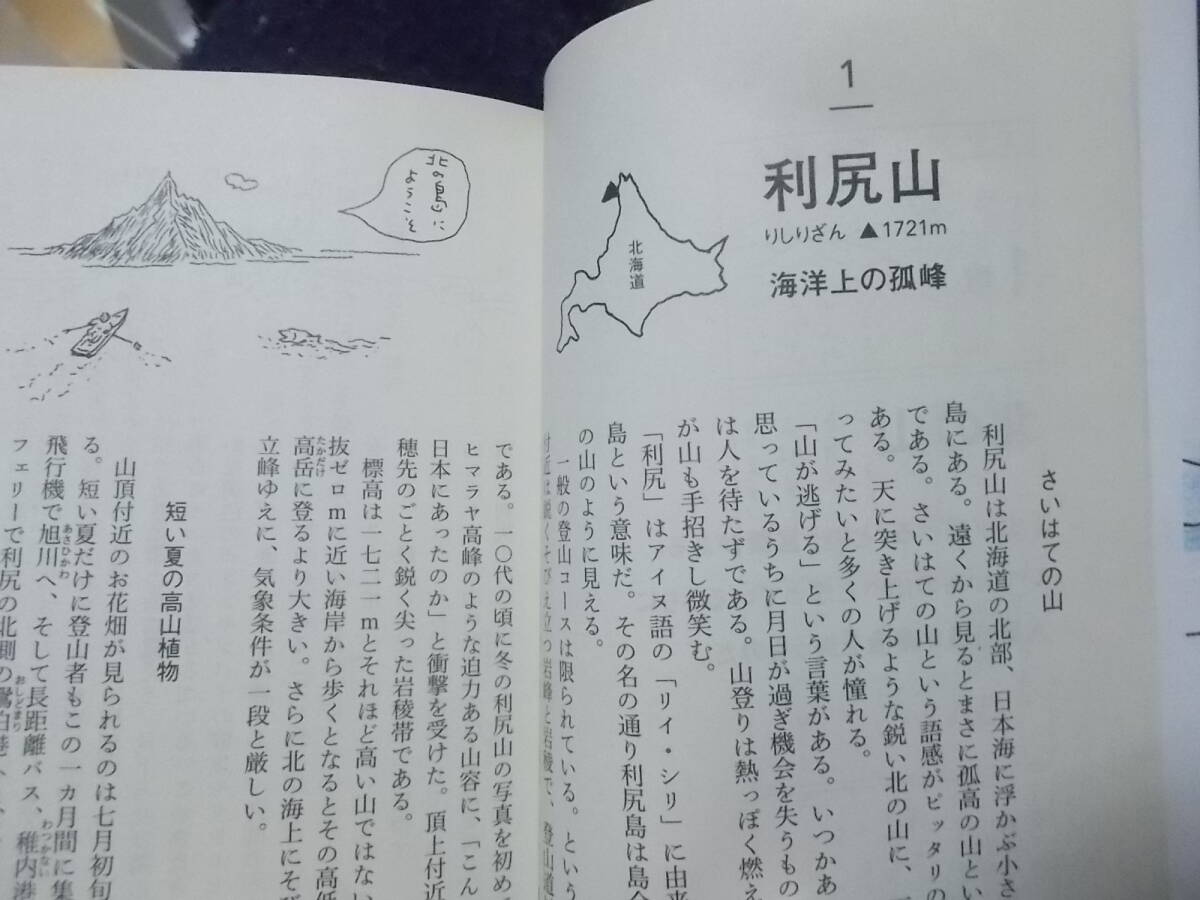 1
利尻山
りしりざん ▲1721m
海洋上の孤峰
北海道
さいはての山
利尻山は北海道の北部、日本海に浮かぶ小さ
島にある。遠くから見るとまさに孤高の山とい
である。さいはての山という語感がピッタリの
ある。天に突き上げるような鋭い北の山に、
ってみたいと多くの人が憧れる。
「山が逃げる」という言葉がある。いつかあ
思っているうちに月日が過ぎ機会を失うもの
は人を待たずである。山登りは熱っぽく燃え
が山も手招きし微笑む。
「利尻」はアイヌ語の「リイ・シリ」に由来
島という意味だ。その名の通り利尻島は島全
の山のように見える。
一般の登山コースは限られている。という
付近は鋭くそびえ立つ岩峰と岩稜で、登山道
北の島に
ようこそ
である。一〇代の頃に冬の利尻山の写真を初め
ヒマラヤ高峰のような迫力ある山容に、「こん
日本にあったのか」と衝撃を受けた。頂上付近
穂先のごとく鋭く尖った岩稜帯である。
標高は一七二一mとそれほど高い山ではない
抜ゼロmに近い海岸から歩くとなるとその高低
高岳に登るより大きい。さらに北の海上にそび
たかだけ
立峰ゆえに、気象条件が一段と厳しい。
短い夏の高山植物
山頂付近のお花畑が見られるのは七月初旬
る。短い夏だけに登山者もこの一カ月間に集
飛行機で旭川へ、そして長距離バス、稚内港
あさひかわ
わっかない
フェリーで利尻の北側の鴛泊港へ
おしどまり